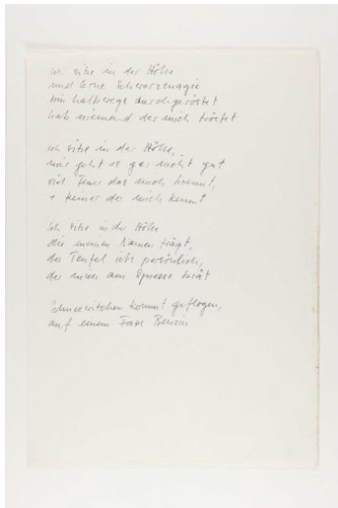 Ich sitze in der Hölle
und lerne Schwarzmagie
bin halbwegs durchgeröstet
hab niemand der mich tröstet
ich sitze in der Hölle,
mir geht es gar nicht gut
viel Feuer das mich brennt,
+ keiner der mich kennt
Ich sitze in der Hölle
die meinen Namen trägt,
der Teufel ists persönlich,
der mich am Spiesse brät
Schneewitchen kommt geflogen,
auf einem Fass Benzin